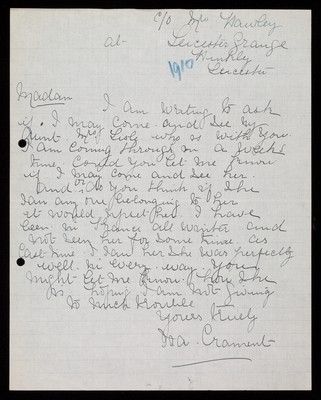 c/o Mrs Hawley
at Leicester Grange
Hinkley
Leicester
1910
Madam
I am writing to ask
if I may come and see my
Aunt Mrs who is with you
I am coming through in a weeks
time. Could you let me know
if I may come and see her.
and or do you think if she
saw any one belonging to her
it would upset her I have
been in France all winter and
not seen her for some time. as
last time I saw her she was perfectly
well in every way. You
might let me know how she
is hoping I am not giving
to much trouble
Yours truely
Ida Crament